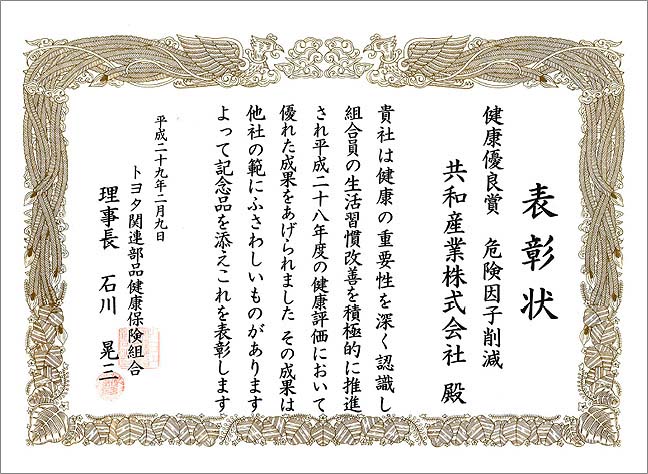 表彰状
健康優良賞　危険因子削減
共和産業株式会社 殿
貴社は健康の重要性を深く認識し
組合員の生活習慣改善を積極的に推進
され平成二十八年度の健康評価において
優れた成果をあげられました その成果は
他社の範にふさわしいものがあります
よって記念品を添えこれを表彰します
平成二十九年二月九日
トヨタ関連部品健康保険組合
理事長 石川 晃三